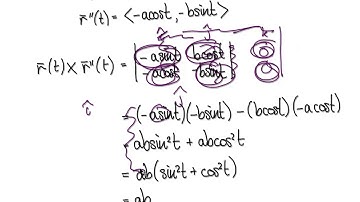 r̄"(t) = <-acost, -bsint>
r̄(t) × r̄"(t) = | -asint bcost 0 |
| -acost -bsint 0 |
î
= (-asint)(-bsint) - (bcost)(-acost)
= absin²t + abcos²t
= ab(sin²t + cos²t)
= ab